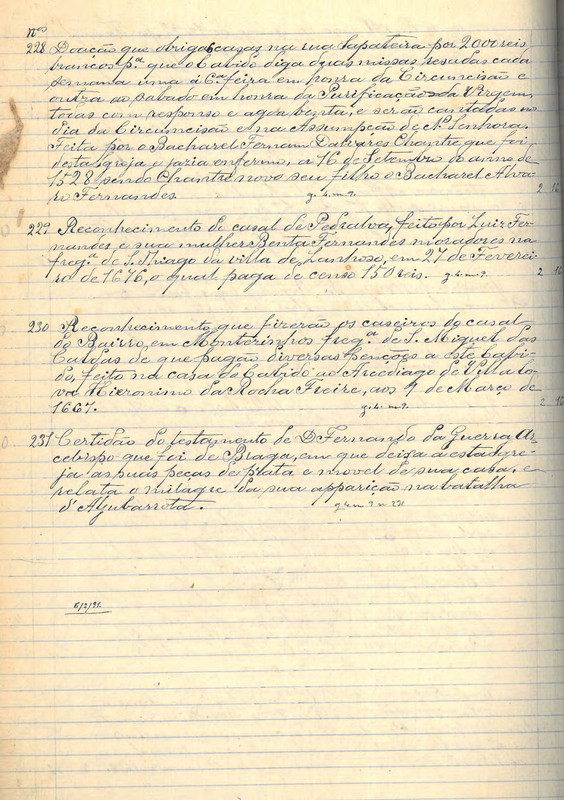 nos
228 Doação que obriga 6 casas na rua Sapateira por 2000 reis
brancos p.ª que o Cabido diga duas missas resadas cada
semana uma á 6.ª feira em honra da Circuncisão e
outra ao sabado em honra da Purificação da Virgem,
todas com responso e agoa benta, e serão cantadas no
dia da Circuncisão e na Assumpção de N. Senhora.
Feita por o Bacharel Fernam Dalvares Chantre que foi
desta igreja e jaria enfermo, a 16 de Setembro do anno de
1528 sendo Chantre novo seu filho o Bacharel Alva-
ro Fernandes. g. 4. m. 9. 2 16
229 Reconhecimento de casal de Pedralva, feito por Luiz Fer-
nandes e sua mulher Benta Fernandes moradores na
freg.ª de S. Thiago da villa de Lanhoso, em 27 de Feverei-
ro de 1676, o qual paga de censo 150 reis. g. 4. m. 9. 2 16
230 Reconhecimento que fizerão os caseiros do casal
do Bairro, em Montezinhos freg.ª de S. Miguel das
Caldas de que pagão diversas pençoes a este Cabi-
do, feito na casa do Cabido ao Arcediago de Villa Co-
va Hieronimo da Rocha Freire, aos 9 de Março de
1667. g. 4. m. 9. 2 16
231 Certidão do testamento de D Fernando da Guerra Ar-
cebispo que foi de Braga, em que deixa a esta igre-
ja as suas peças de prata e movel de sua casa, e
relata o milagre da sua apparição na batalha
d'Aljubarrota. g 4 m 9 n 231
6/2/91.